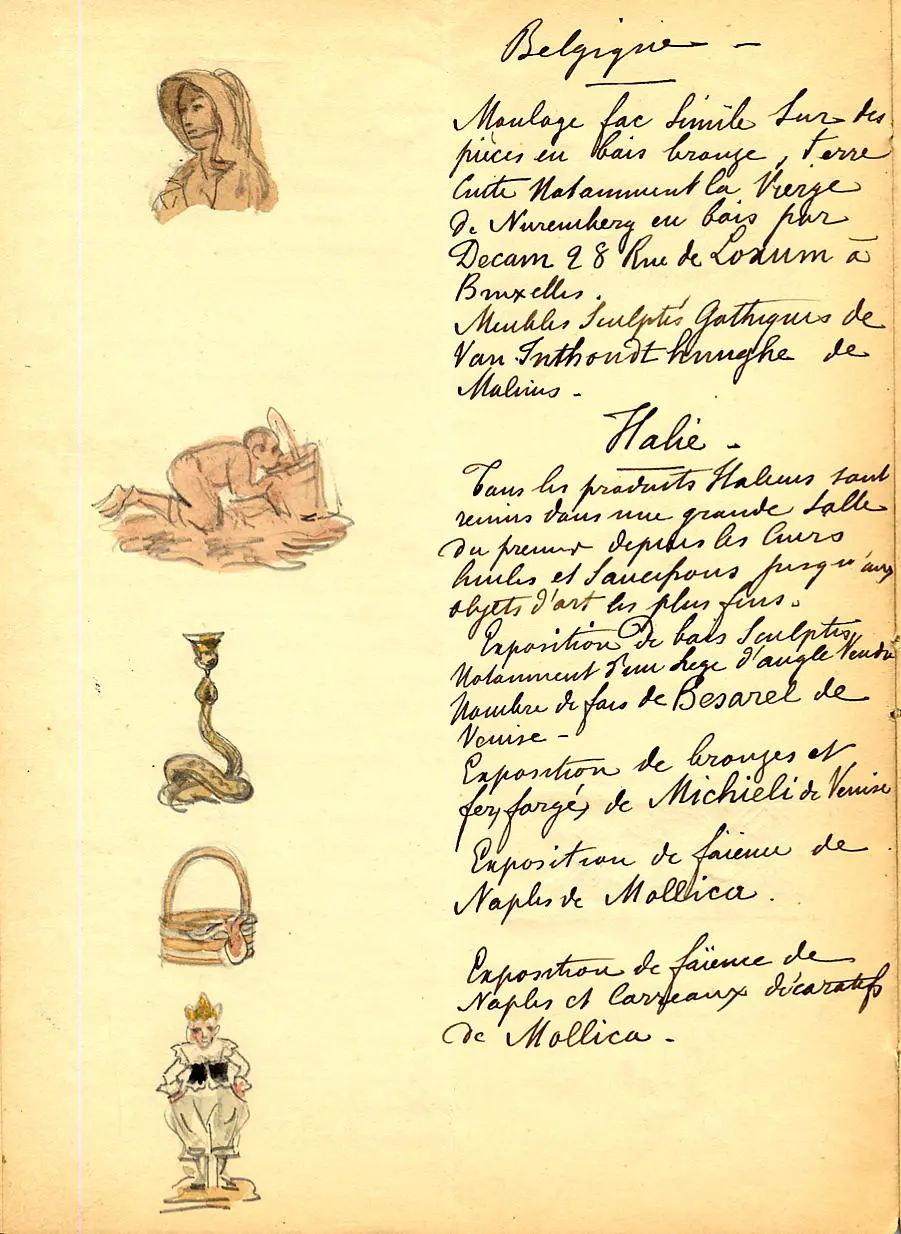 Belgique -
Moulage fac simile sur des
pièces en bois bronze, terre
cuite Notamment la Vierge
de Nuremberg en bois par
Decam 28 Rue de Loxum à
Bruxelles.
Meubles Sculptés Gothiques de
Van
Malines -
Italie -
Tous les produits Italiens sont
reunis dans une grande salle
du premier depuis les Cuirs
huiles et Saucissons jusqu'aux
objets d'art les plus fins.
Exposition de bois Sculptés
Notamment d'un siege d'angle Vendu
Nombre de fois de Besarel de
Venise -
Exposition de bronzes et
fers forgés de Michieli de Venise
Exposition de faïence de
Naples de Mollica.
Exposition de faïence de
Naples et Carreaux décoratifs
de Mollica -